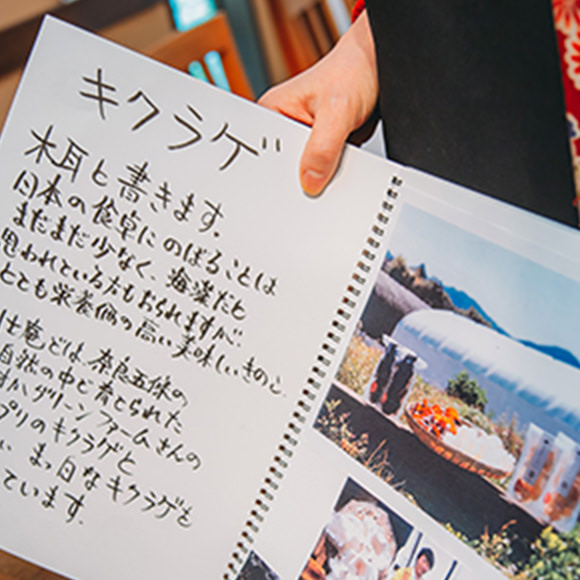 キクラゲ
木耳と書きます。
日本の食卓にのぼることは
まだまだ少なく、海藻だと
思われている方もおられますが、
とても栄養価の高い美味しいきのこ。
庵では、奈良五條の
自然の中で育てられた
グリーンファームさんの
プリのキクラゲと
まっ白なキクラゲも
ています。